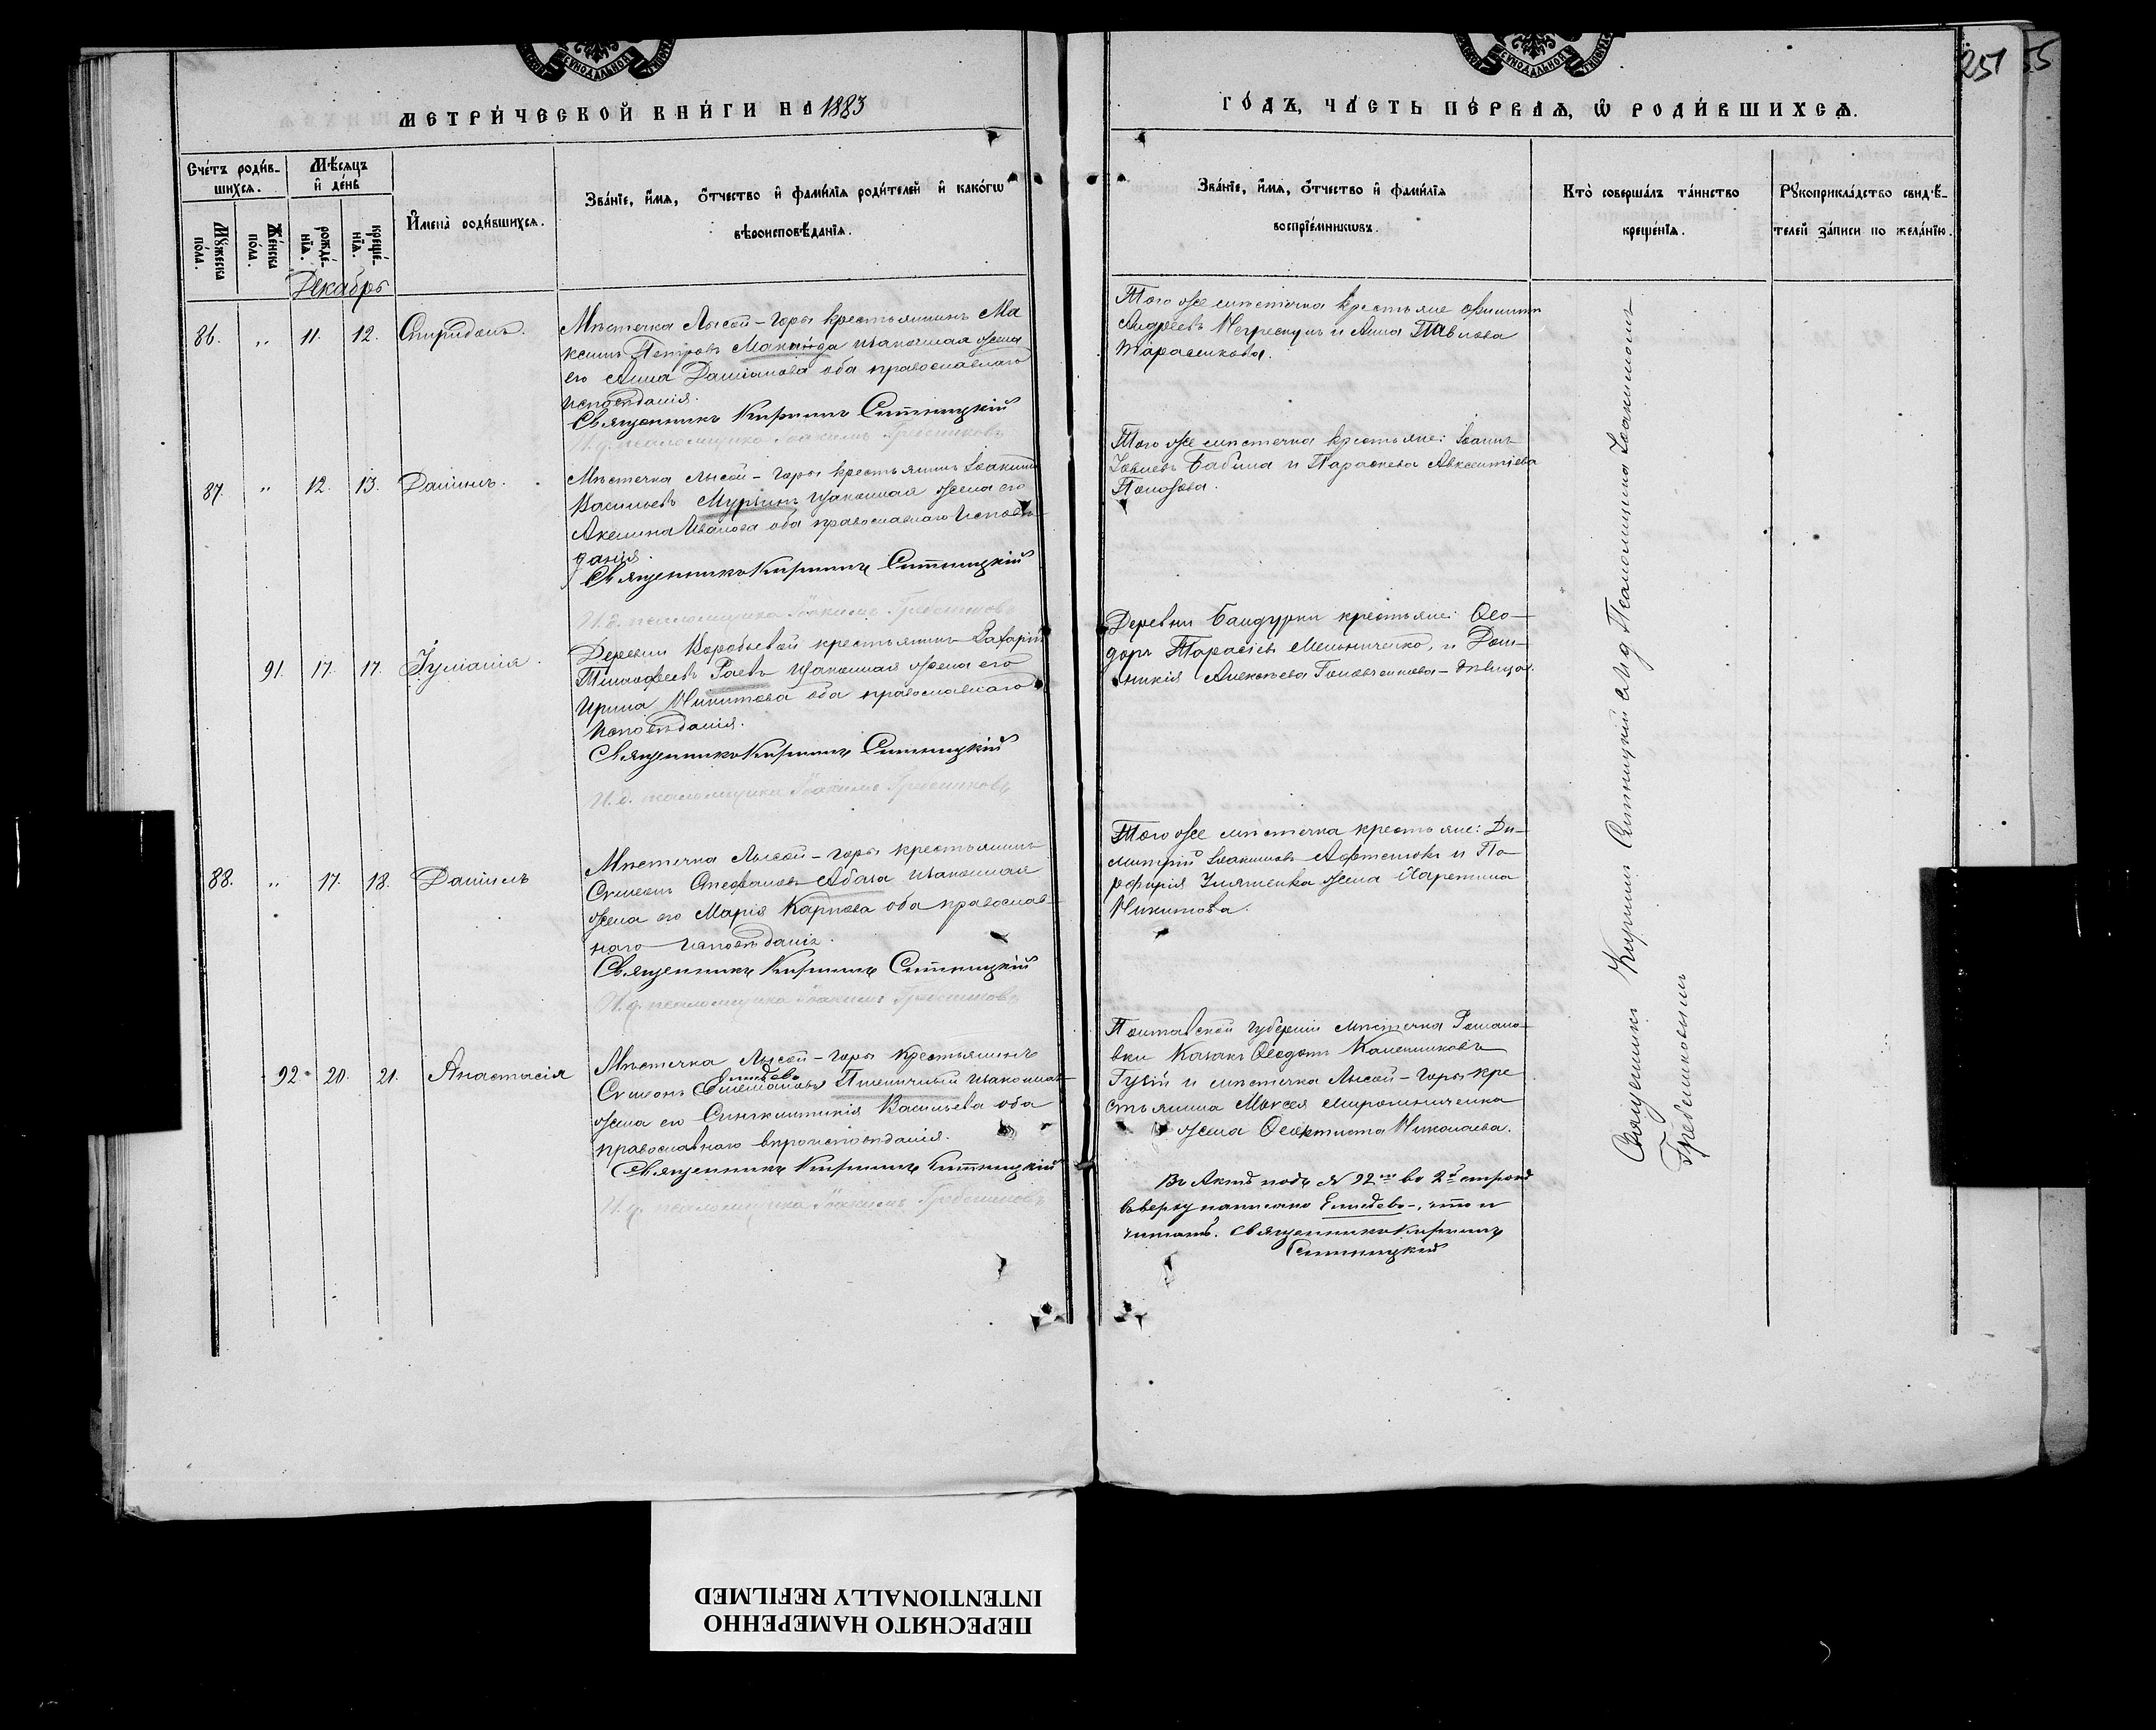 СѴНОДАЛЬНОЙ
СѴНОДАЛЬНОЙ
251 55
МЕТРИ́ЧЕСКОЙ КНИ́ГИ НА 1883
ГО́ДЪ, ЧА́СТЬ ПЕ́РВАЯ, Ѡ РОДИ́ВШИХСѦ.
Сче́тъ роди́в-
шихсѧ.
Мѣ́сѧцъ
и де́нь
Мꙋ́жеска
по́ла.
Же́нска
по́ла.
рожде́-
нїѧ.
креще́-
нїѧ.
И҆мена̀ роди́вшихсѧ.
Зва́нїе, и҆́мѧ, ѻ҆́тчество и҆ фами́лїѧ роди́телей и҆ како́гѡ
вѣроисповѣ́данїѧ.
Зва́нїе, и҆́мѧ, ѻ҆́тчество и҆ фами́лїѧ
воспрїе́мникѡвъ.
Кто̀ соверша́лъ та́инство
креще́нїѧ.
Рꙋкоприкла́дство свидѣ́-
телей за́писи по жела́нїю.
Декабрь
86. " 11. 12. Спиридонъ.
Мѣстечка Лысой-Горы крестьянинъ Ма
ксимъ Петровъ и законная жена
его Анна Даміанова оба православнаго
исповѣданія.
Священникъ Кириллъ Ситницкій
И. д. псаломщика Іоакимъ Гребенниковъ
Того же мѣстечка крестьяне Филиппъ
Андреевъ Негрескулъ и Анна Павлова
Тарасенкова.
87. " 12. 13. Даніилъ.
Мѣстечка Лысой-Горы крестьянинъ Іоакимъ
Васильевъ и законная жена его
Акилина Иванова оба православнаго исповѣ-
данія.
Священникъ Кириллъ Ситницкій
И. д. псаломщика Іоакимъ Гребенниковъ
Того же мѣстечка крестьяне: Іоаннъ
Іовлевъ Бабина и Параскева Авксентіева
91. 17. 17. Іуліанія.
Деревни Воробьевой крестьянинъ Захарій
Тимофеевъ Раевъ и законная жена его
Ирина Никитова оба православнаго
исповѣданія.
Священникъ Кириллъ Ситницкій
И. д. псаломщика Іоакимъ Гребенниковъ
Деревни Бандурки крестьяне: Ѳео-
доръ Тарасіевъ Мельниченко, и Дом-
никія Алексѣева - дѣвица.
88. " 17. 18. Даніилъ
Мѣстечка Лысой-Горы крестьянинъ
Симеонъ Стефановъ Абаза и законная
жена его Марія Карпова оба православ-
наго исповѣданія.
Священникъ Кириллъ Ситницкій
И. д. псаломщика Іоакимъ Гребенниковъ
Того же мѣстечка крестьяне: Ди-
митрій Іоакимовъ Афтенюкъ и По-
рфирія жена Харетина
Никитова.
92. 20. 21. Анастасія
Мѣстечка Лысой-Горы крестьянинъ
Симеонъ Пшеничный и законная
жена его Синклитикія Васильева оба
православнаго вѣроисповѣданія.
Священникъ Кириллъ Ситницкій
И. д. псаломщика Іоакимъ Гребенниковъ
Полтавской губерніи мѣстечка Романо-
вки казакъ Ѳеодотъ
и мѣстечка Лысой-Горы кре
стьянина Моисея Мирошниченка
жена Ѳеоктиста Николаева.
Въ Актѣ подъ № 92мъ во 2й строкѣ
вверху написано , что и
читать. Священникъ Кириллъ
Ситницкій
Священникъ Кириллъ Ситницкій съ И д Псаломщика Іоакимомъ
Гребенниковымъ
ПЕРЕСНЯТО НАМЕРЕННО
INTENTIONALLY REFILMED